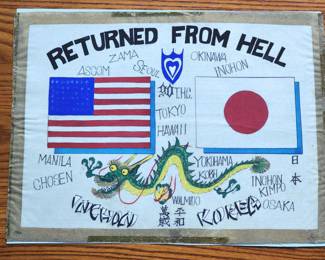 RETURNED FROM HELL
ZAMA
OKINAWA
ASCOM
SEOUL
INCHON
TOKYO
HAWAII
MANILA
CHOSEN
YOKOHAMA
KOBE
日本
INCHON
KIMPO
OSAKA
INCHON
KOREA
平和
萬歳